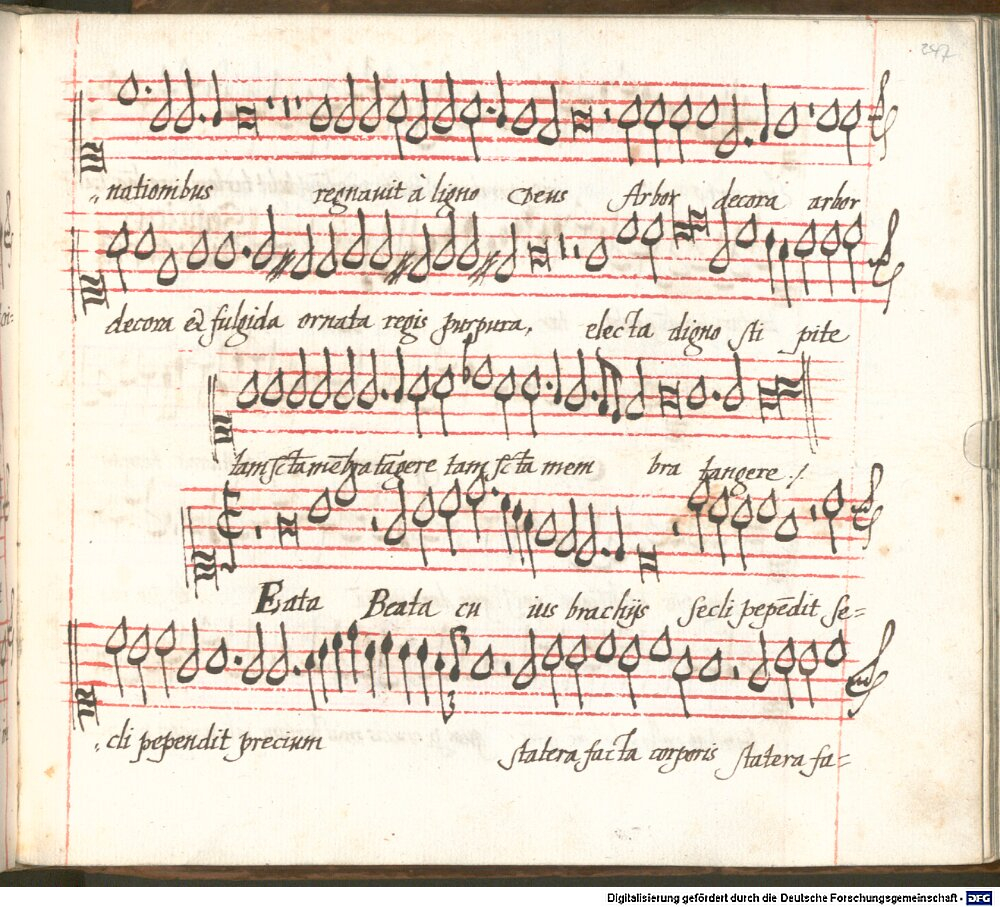 247
nationibus regnavit à ligno Deus Arbor decora arbor
decora et fulgida ornata regis purpura, electa digno sti pite
tam sc̃ta mẽbra tãgere tam sc̃ta mem bra tangere /.
Beata Beata cu ius brachijs secli pepẽdit se=
cli pependit precium statera facta corporis statera fa=
Digitalisierung gefördert durch die Deutsche Forschungsgemeinschaft - DFG